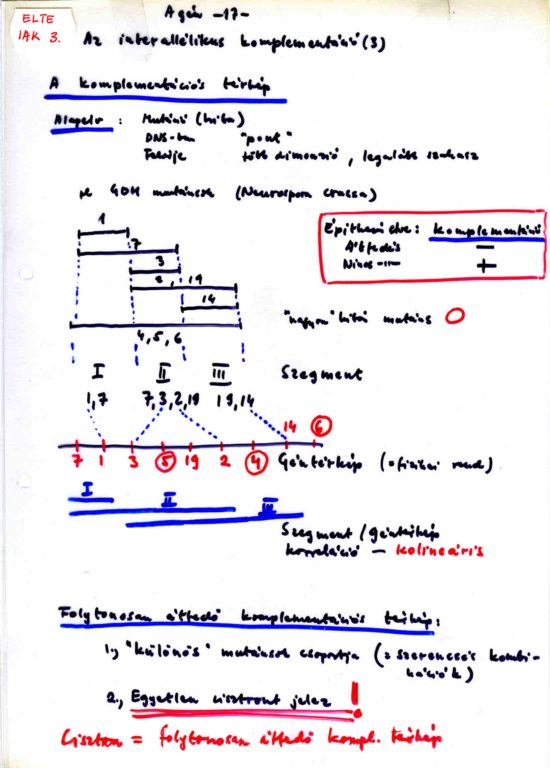 ELTE
IAK 3.
A gén -17-
Az interallélikus komplementáció (3)
A komplementációs térkép
Alapelv : Mutáció (hiba)
DNS-ben "pont"
Fehérje több dimenzió, legalább szakasz
pl GDH mutánsok (Neurospora crassa)
1
7
3
2, 19
14
4, 5, 6
Építkezési elve: komplementáció
Átfedés —
Nincs -"- +
"nagyon" hibás mutáns O
I II III Szegment
1,7 7,3,2,19 19,14
14 6
7 1 3 5 19 2 4 Géntérkép (=fizikai rend)
I II III
Szegment / géntérkép
korreláció — kolineáris
Folytonosan átfedő komplementációs térkép:
1., "különös" mutánsok csoportja (= szerencsés kombi-
nációk)
2., Egyetlen cisztront jelez !
Cisztron = folytonosan átfedő kompl. térkép